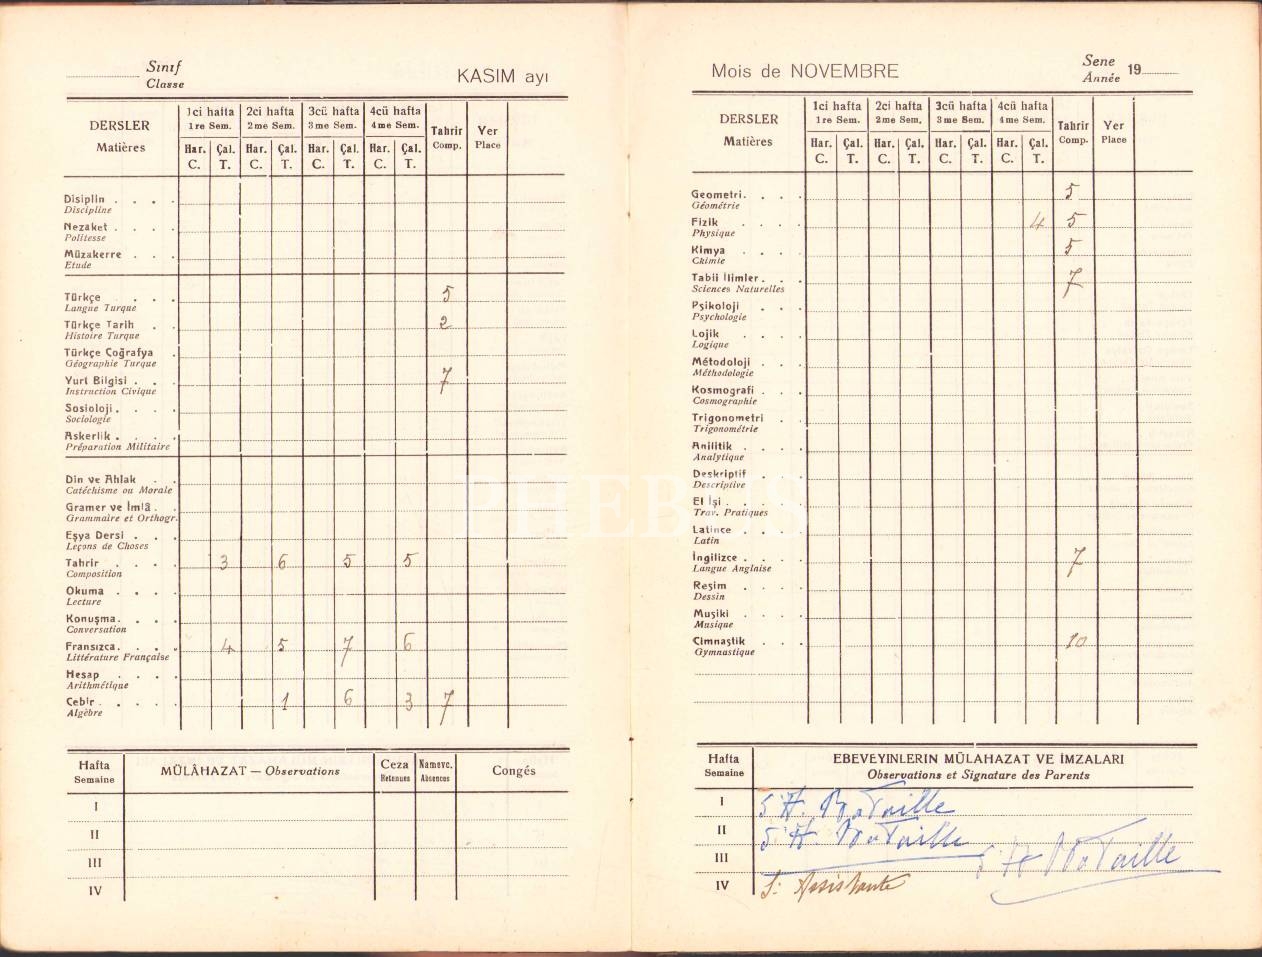 Sınıf
Classe
KASIM ayı
DERSLER
Matières
1ci hafta 2ci hafta 3cü hafta 4cü hafta
1re Sem. 2me Sem. 3me Sem. 4me Sem.
Tahrir Yer
Comp. Place
Har. Çal. Har. Çal. Har. Çal. Har. Çal.
C. T. C. T. C. T. C. T.
Disiplin . . . .
Discipline
Nezaket . . . .
Politesse
Müzakerre . . .
Etude
Türkçe . . . 5
Langue Turque
Türkçe Tarih . . 2
Histoire Turque
Türkçe Coğrafya .
Géographie Turque
Yurt Bilgisi . . . 7
Instruction Civique
Sosioloji . . . .
Sociologie
Askerlik . . . .
Préparation Militaire
Din ve Ahlak . .
Catéchisme ou Morale
Gramer ve İmlâ . .
Grammaire et Orthogr.
Eşya Dersi . . .
Leçons de Choses
Tahrir . . . . 3 6 5 5
Composition
Okuma . . . .
Lecture
Konuşma. . . .
Conversation
Fransızca. . . . 4 5 7 6
Littérature Française
Hesap . . . .
Arithmétique
Cebir . . . . 1 6 3 7
Algèbre
Hafta
Semaine
MÜLÂHAZAT — Observations
Ceza
Retenues
Namevc.
Absences
Congés
I
II
III
IV
Mois de NOVEMBRE
Sene
Année 19
DERSLER
Matières
1ci hafta 2ci hafta 3cü hafta 4cü hafta
1re Sem. 2me Sem. 3me Sem. 4me Sem.
Tahrir Yer
Comp. Place
Har. Çal. Har. Çal. Har. Çal. Har. Çal.
C. T. C. T. C. T. C. T.
Geometri. . . . 5
Géométrie
Fizik . . . . 4 5
Physique
Kimya . . . . 5
Chimie
Tabii İlimler . . . 7
Sciences Naturelles
Psikoloji . . .
Psychologie
Lojik . . . .
Logique
Métodoloji . . .
Méthodologie
Kosmografi . . .
Cosmographie
Trigonometri .
Trigonométrie
Anilitik . . . .
Analytique
Deskriptif . . .
Descriptive
El İşi . . . .
Trav. Pratiques
Latince . . . .
Latin
İngilizce . . . . 7
Langue Anglaise
Resim . . . .
Dessin
Musiki . . . .
Musique
Cimnastik . . . 10
Gymnastique
PHEBUS
Hafta
Semaine
EBEVEYINLERIN MÜLAHAZAT VE İMZALARI
Observations et Signature des Parents
I
II
III
IV